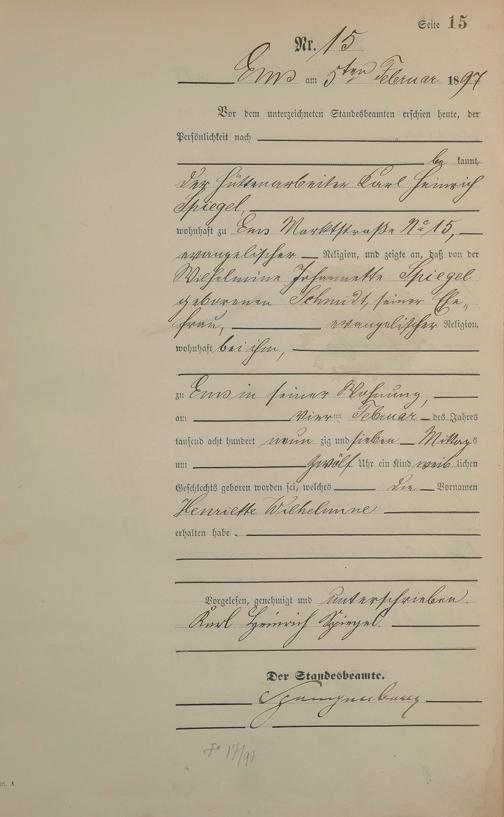 Seite 15
Nr. 15
Ems am 5ten Februar 1897
Vor dem unterzeichneten Standesbeamten erschien heute, der
Persönlichkeit nach
be kannt,
der Hüttenarbeiter Karl Heinrich
Spiegel,
wohnhaft zu Ems Marktstraße No 15,
evangelischer Religion, und zeigte an, daß von der
Wilhelmine Johannette Spiegel
geborenen Schmidt, seiner Ehe-
frau, evangelischer Religion,
wohnhaft bei ihm,
zu Ems in seiner Wohnung,
am vierten Februar des Jahres
tausend acht hundert neun zig und sieben Mittags
um zwölf Uhr ein Kind weib lichen
Geschlechts geboren worden sei, welches die Vornamen
Henriette Wilhelmine
erhalten habe.
Vorgelesen, genehmigt und unterschrieben.
Karl Heinrich Spiegel.
Der Standesbeamte.
17/97
A.